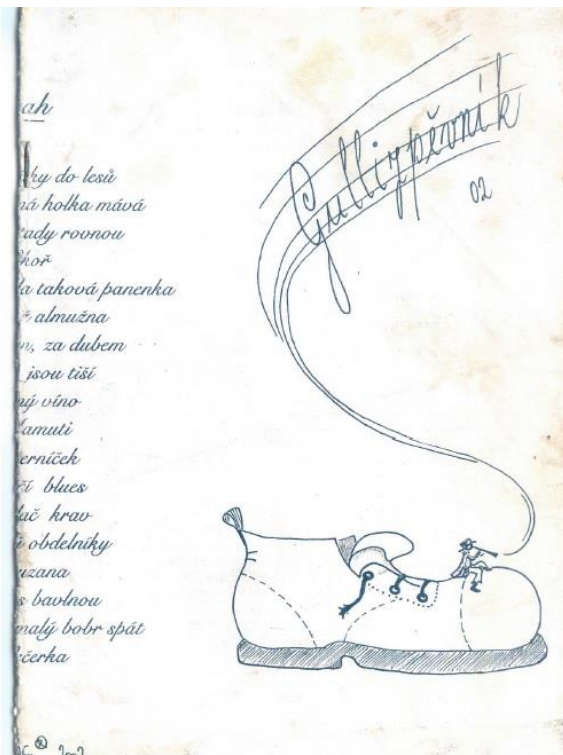 ah
ky do lesů
ná holka mává
tady rovnou
koř
la taková panenka
almužna
n, za dubem
jsou tiší
ný víno
amuti
erníček
ří blues
lač krav
obdelníky
uzana
s bavlnou
malý bobr spát
čerka
Gullizpěvník
02